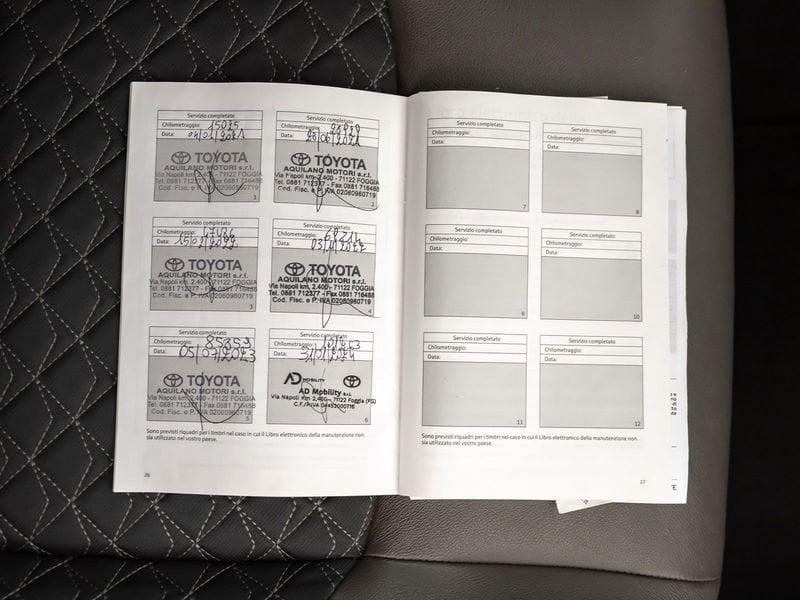 Servizio completato
Chilometraggio: 15075
Data: 04/01/2021
TOYOTA
AQUILANO MOTORI s.r.l.
Via Napoli km. 2,400 - 71122 FOGGIA
Tel. 0881 712377 - Fax 0881 716488
Cod. Fisc. e P. IVA 02060960719
1
Servizio completato
Chilometraggio:
Data: 28/06/2021
TOYOTA
AQUILANO MOTORI s.r.l.
Via Napoli km. 2,400 - 71122 FOGGIA
Tel. 0881 712377 - Fax 0881 716488
Cod. Fisc. e P. IVA 02060960719
2
Servizio completato
Chilometraggio:
Data: 15/02/2022
TOYOTA
AQUILANO MOTORI s.r.l.
Via Napoli km. 2,400 - 71122 FOGGIA
Tel. 0881 712377 - Fax 0881 716488
Cod. Fisc. e P. IVA 02060960719
3
Servizio completato
Chilometraggio:
Data:
TOYOTA
AQUILANO MOTORI s.r.l.
Via Napoli km. 2,400 - 71122 FOGGIA
Tel. 0881 712377 - Fax 0881 716488
Cod. Fisc. e P. IVA 02060960719
4
Servizio completato
Chilometraggio: 85353
Data: 05/07/2023
TOYOTA
AQUILANO MOTORI s.r.l.
Via Napoli km. 2,400 - 71122 FOGGIA
Tel. 0881 712377 - Fax 0881 716488
Cod. Fisc. e P. IVA 02060960719
5
Servizio completato
Chilometraggio:
Data: 31/01/2024
AD MOBILITY
AD Mobility s.r.l.
Via Napoli km. 2,400 - 71122 Foggia (FG)
C.F./P.IVA 04453000716
6
Sono previsti riquadri per i timbri nel caso in cui il Libro elettronico della manutenzione non
sia utilizzato nel vostro paese.
26
Servizio completato
Chilometraggio:
Data:
7
Servizio completato
Chilometraggio:
Data:
8
Servizio completato
Chilometraggio:
Data:
9
Servizio completato
Chilometraggio:
Data:
10
Servizio completato
Chilometraggio:
Data:
11
Servizio completato
Chilometraggio:
Data:
12
Sono previsti riquadri per i timbri nel caso in cui il Libro elettronico della manutenzione non
sia utilizzato nel vostro paese.
27